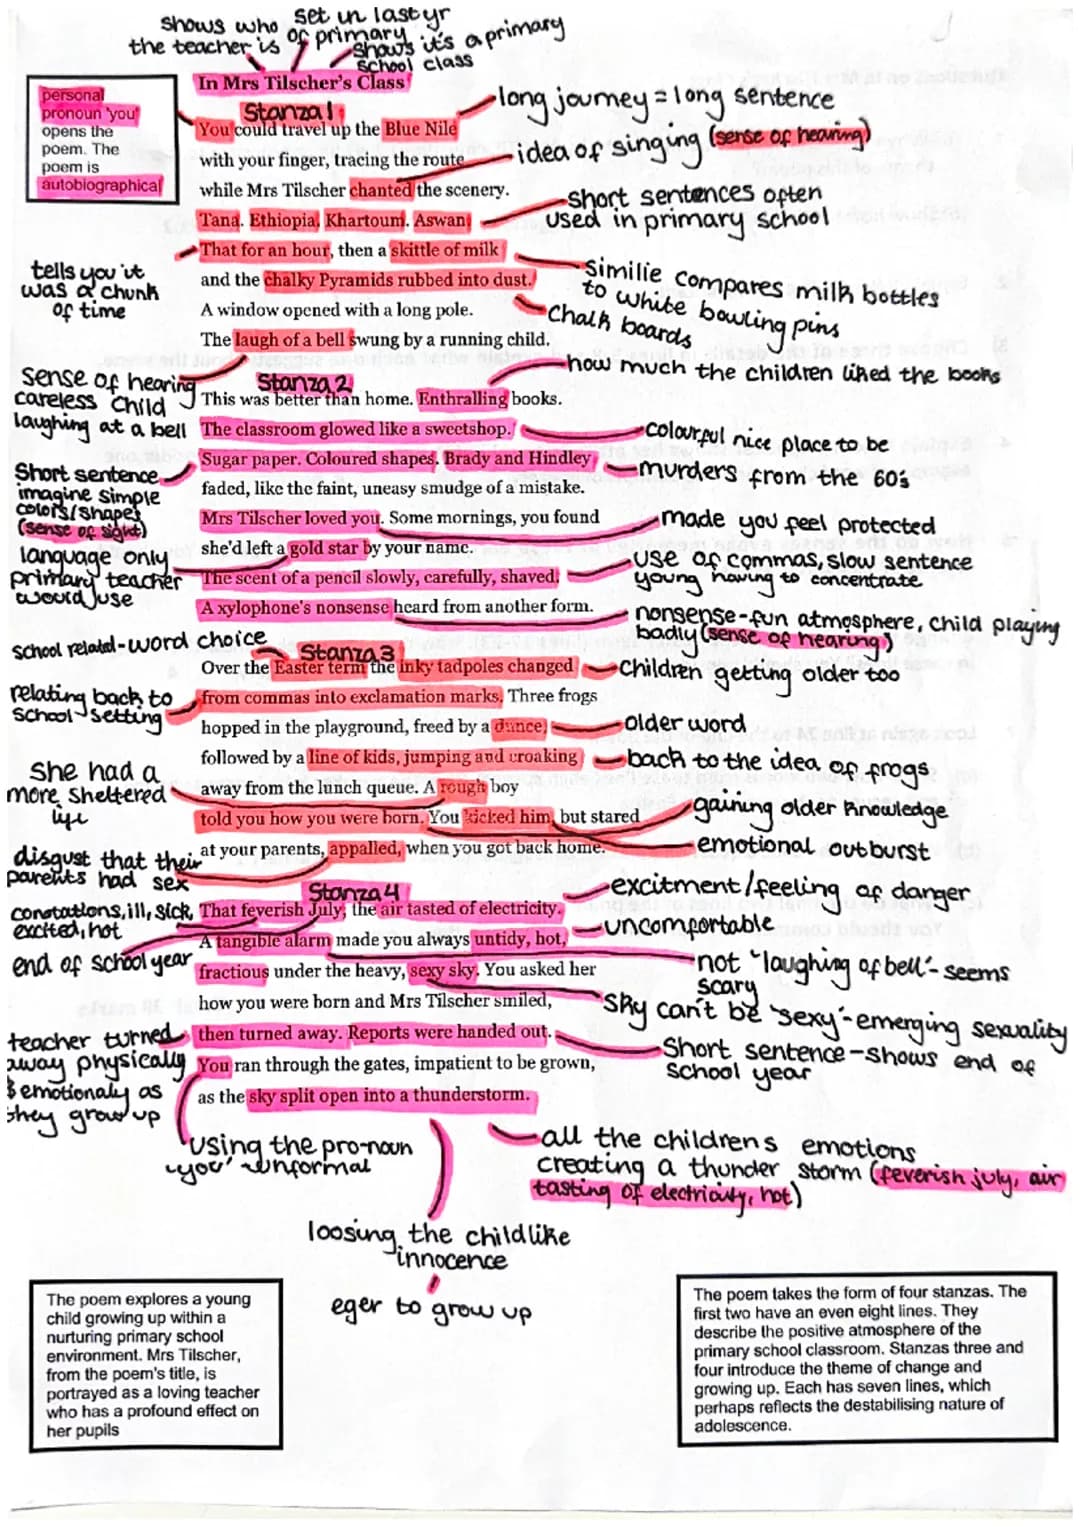 shows who
the teacher is
set in last yr
of primary
shows it's a primary
school class
In Mrs Tilscher's Class
personal
pronoun 'you'
opens the
poem. The
poem is
autobiographical
Stanza 1
You could travel up the Blue Nile
with your finger, tracing the route
while Mrs Tilscher chanted the scenery.
Tana. Ethiopia. Khartoum. Aswan.
That for an hour, then a skittle of milk
and the chalky Pyramids rubbed into dust.
A window opened with a long pole.
The laugh of a bell swung by a running child.
long journey = long sentence
idea of singing (sense of hearing)
short sentences often
used in primary school
tells you it
was a chunk
of time
Similie compares milk bottles
to white bowling pins
Chalk boards
sense of hearing
careless child
laughing at a bell
how much the children liked the books
Stanza 2
This was better than home. Enthralling books.
The classroom glowed like a sweetshop.
Sugar paper. Coloured shapes. Brady and Hindley
faded, like the faint, uneasy smudge of a mistake.
Mrs Tilscher loved you. Some mornings, you found
she'd left a gold star by your name.
The scent of a pencil slowly, carefully, shaved.
A xylophone's nonsense heard from another form.
colourful nice place to be
murders from the 60s
Short sentence
imagine simple
colors/shapes
(sense of sight)
made you feel protected
language only
primary teacher
would use
use of commas, slow sentence
young having to concentrate
nonsense-fun atmosphere, child playing
badly (sense of hearing)
school related-word choice
Stanza 3
Over the Easter term the inky tadpoles changed
from commas into exclamation marks. Three frogs
hopped in the playground, freed by a dunce,
followed by a line of kids, jumping and croaking
away from the lunch queue. A rough boy
told you how you were born. You kicked him, but stared
at your parents, appalled, when you got back home.
Children getting older too
relating back to
school setting
older word
back to the idea of frogs
she had a
more sheltered
life
gaining older knowledge
emotional outburst
disgust that their
parents had sex
Stanza 4
That feverish July, the air tasted of electricity.
A tangible alarm made you always untidy, hot,
fractious under the heavy, sexy sky. You asked her
how you were born and Mrs Tilscher smiled,
then turned away. Reports were handed out.
You ran through the gates, impatient to be grown,
as the sky split open into a thunderstorm.
excitment/feeling of danger
conotations, ill, sick,
excited, hot
uncomfortable
end of school year
not "laughing of bell"- seems
scary
sky can't be 'sexy'-emerging sexuality
teacher turned
away physically
& emotionaly as
they grow up
Short sentence-shows end of
school year
using the pro-noun
'you' - unformal
all the childrens emotions
creating a thunder storm (feverish july, air
tasting of electricity, hot)
loosing the childlike
innocence
eger to grow up
The poem explores a young
child growing up within a
nurturing primary school
environment. Mrs Tilscher,
from the poem's title, is
portrayed as a loving teacher
who has a profound effect on
her pupils
The poem takes the form of four stanzas. The
first two have an even eight lines. They
describe the positive atmosphere of the
primary school classroom. Stanzas three and
four introduce the theme of change and
growing up. Each has seven lines, which
perhaps reflects the destabilising nature of
adolescence.